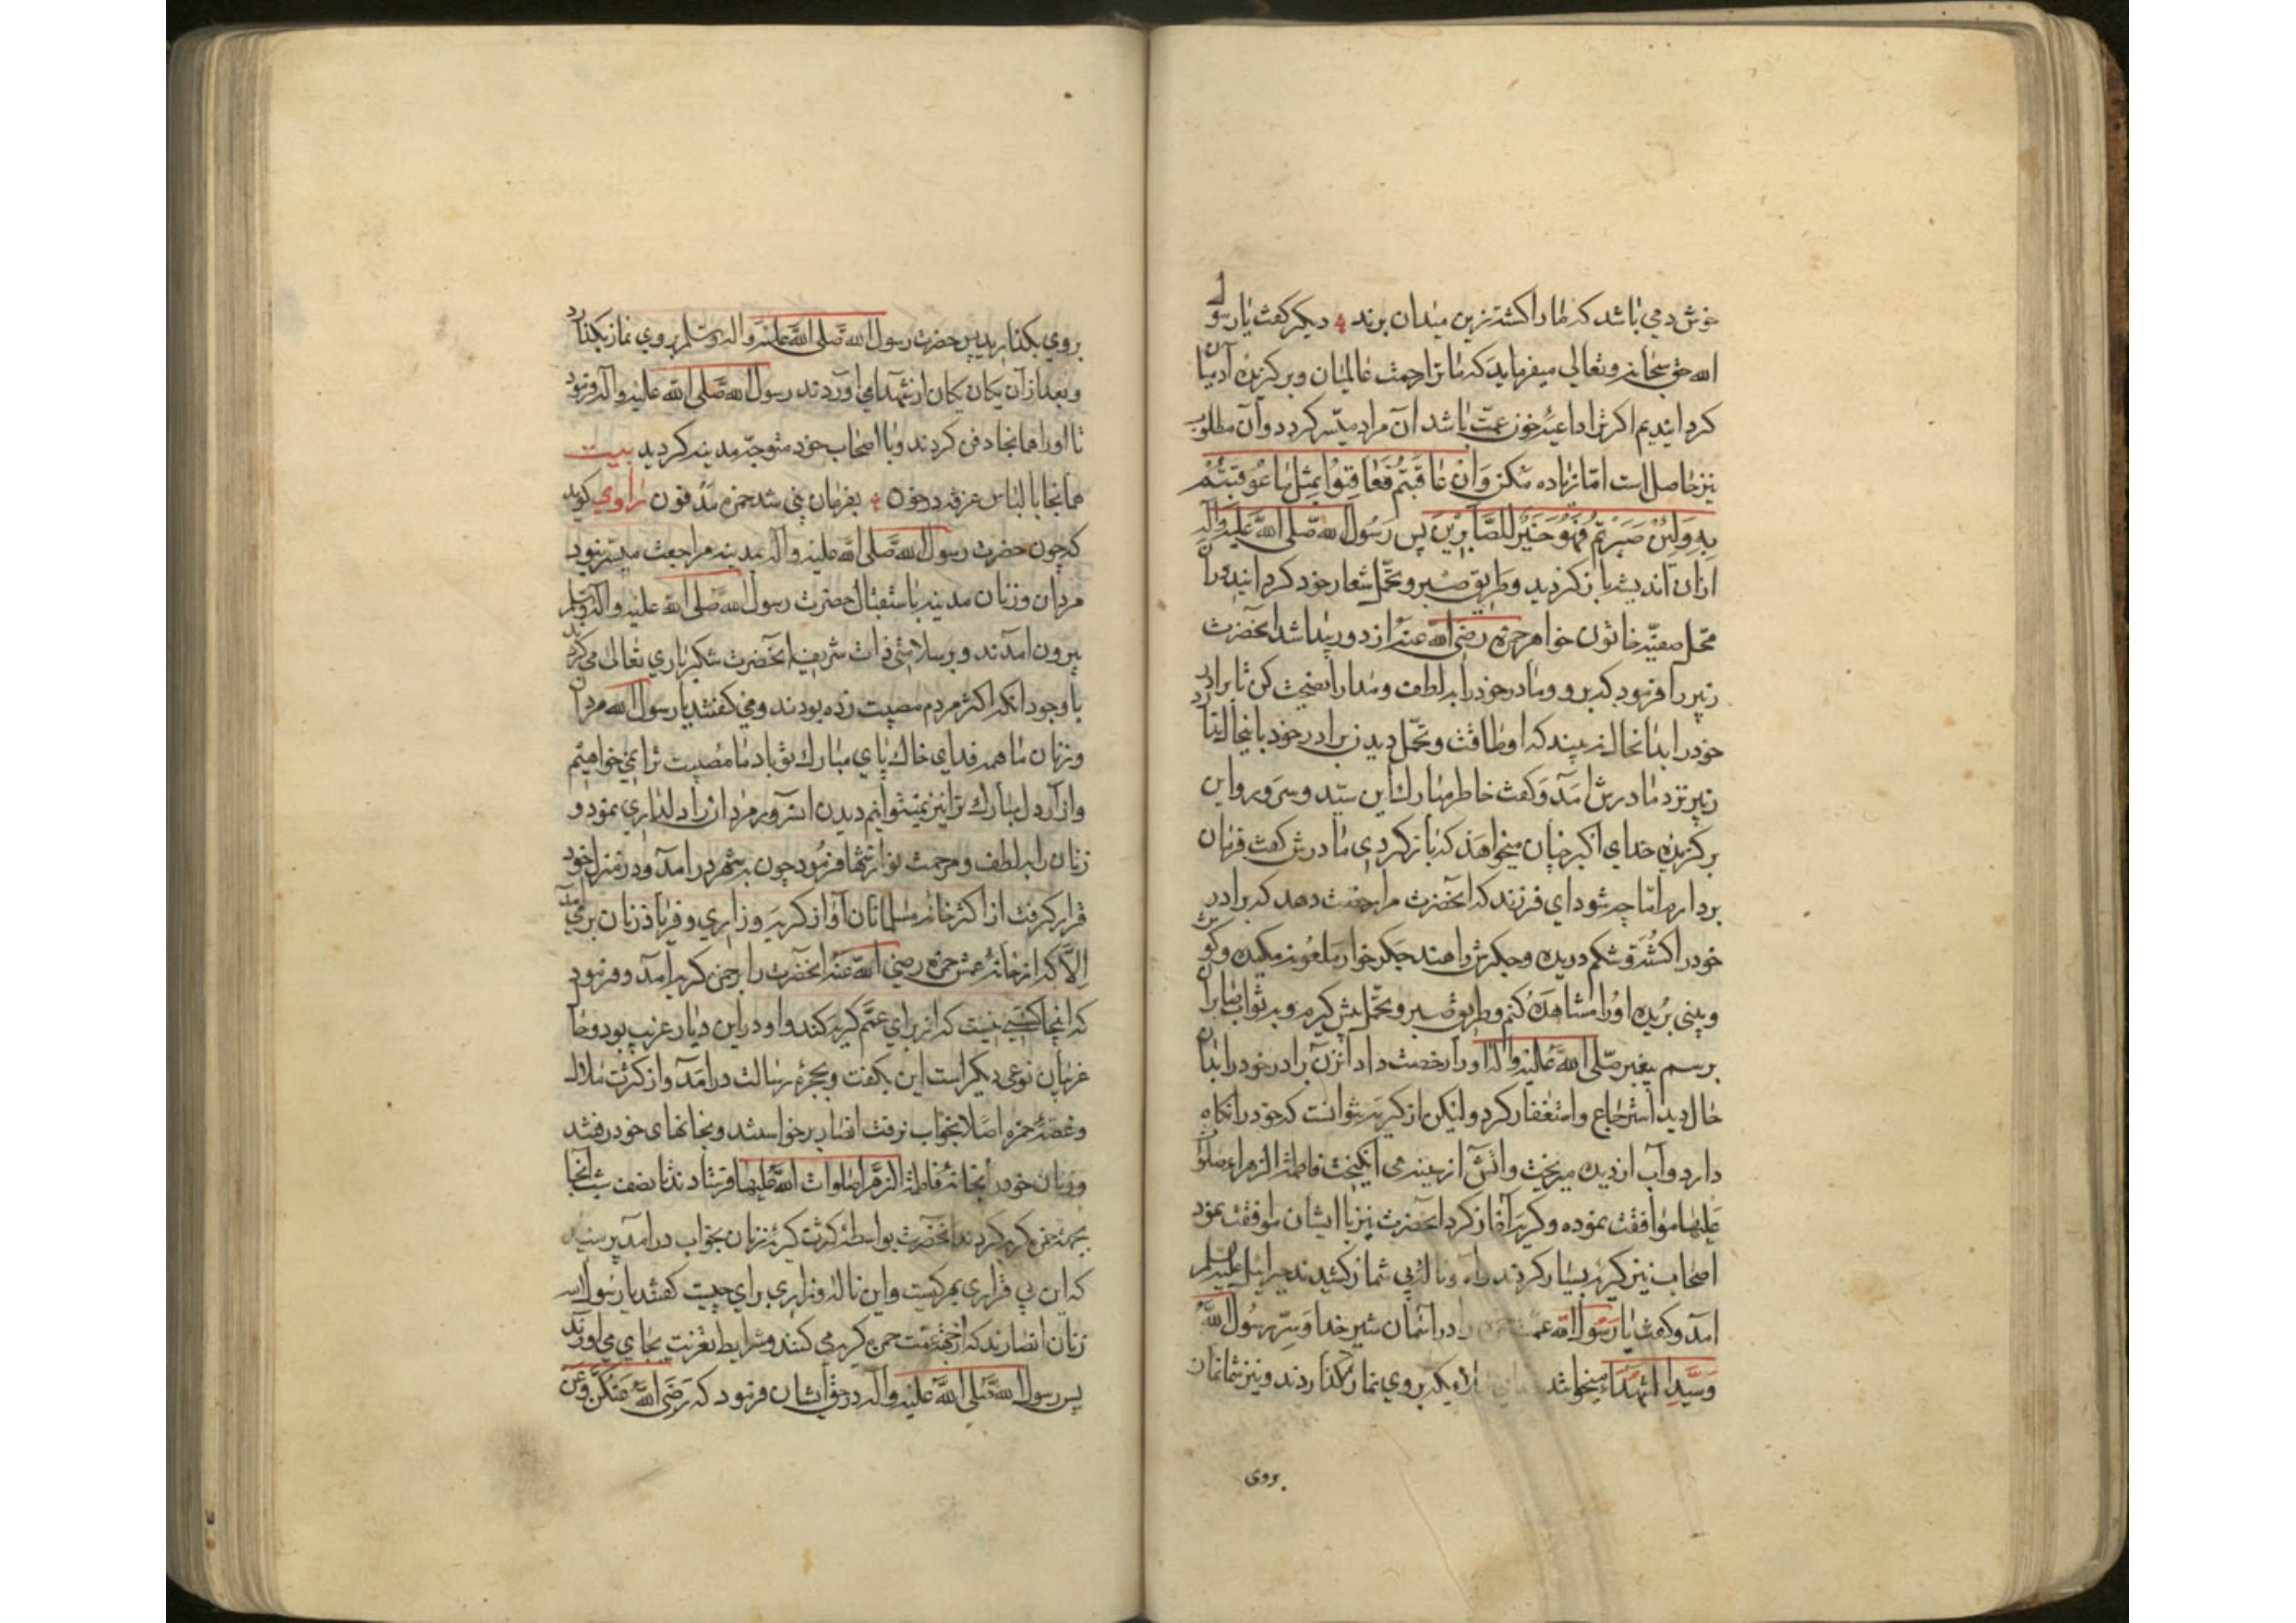 خوش دمی باشد که ما را کشته زین میدان برند دیگر گفت یا رسول
الله حق سبحانه و تعالی میفرماید که ما ترا رحمت عالمیان و برگزیده آدمیان
گردانیدیم اگر ترا داعیهٔ خون عمت باشد آن مراد میسر گردد و آن مطلوب
نیز حاصل است اما زیاده مکن وَاِنْ عَاقَبْتُمْ فَعَاقِبُوا بِمِثْلِ مَا عُوقِبْتُمْ
بِهِ وَلَئِنْ صَبَرْتُمْ لَهُوَ خَیْرٌ لِلصَّابِرِینَ پس رسول الله صلی الله علیه وآله
ازان اندیشه باز گردید و طریق صبر و تحمل شعار خود گردانید دران
محل صفیه خاتون خواهر حمزه رضی الله عنه از دور پیدا شد آنحضرت
زبیر را فرمود که برو و مادر خود را به لطف و مدارا نصیحت کن تا برادر
خود را بدانحال نه بیند که او طاقت و تحمل دیدن برادر خود باینحال ندارد
زبیر نزد مادرش آمد و گفت خاطر مبارک این سید و سرور و این
برگزیده خدای اکبر چنان میخواهد که باز گردی مادرش گفت فرمان
بردارم اما چه شود ای فرزند که آنحضرت مرا رخصت دهد که برادر
خود را کشته و شکم دریده و جگرش را هند جگر خوار ملعونه مکیده و گوش
و بینی بریده او را مشاهده کنم و طریق صبر و تحمل پیش گیرم و به ثواب صابران
برسم پیغمبر صلی الله علیه وآله او را رخصت داد آنزن برادر خود را بدان
حال دید استرجاع و استغفار کرد ولیکن از گریه نتوانست که خود را نگاه
دارد و آب از دیده میریخت و آتش از سینه می انگیخت فاطمة الزهرا صلوات
علیها موافقت نموده و گریه آغاز کرد آنحضرت نیز با ایشان موافقت نمود
اصحاب نیز گریه بسیار کردند و آه و ناله بی شمار کشیدند جبرائیل علیه السلم
آمد و گفت یا رسول الله عمت حمزه را در آسمان شیر خدا و سِرّ رسول الله
و سید الشهداء میخوانند که بر وی نماز بگذاردند و نیز شما نماز
بروی
بروی بگذارید پس حضرت رسول الله صلی الله علیه وآله وسلم بروی نماز بگذارد
و بعد ازآن یکان یکان از شهدا می آوردند رسول الله صلی الله علیه وآله فرمود
تا او را همانجا دفن کردند و با اصحاب خود متوجه مدینه گردید بیت
همانجا با لباس غرقه در خون بفرمان نبی شد حمزه مدفون راوی گوید
که چون حضرت رسول الله صلی الله علیه وآله بمدینه مراجعت میسر نمود
مردان و زنان مدینه باستقبال حضرت رسول الله صلی الله علیه وآله وسلم
بیرون آمدند و بر سلامتی ذات شریف آنحضرت شکر باری تعالی می کردند
با وجود آنکه اکثر مردم مصیبت زده بودند و می گفتند یا رسول الله مردان
و زنان ما همه فدای خاک پای مبارک تو باد ما مصیبت ترا نمی خواهیم
و آزار دل مبارک ترا نیز نمیتوانیم دیدن آنسرور مردان را دلداری نمود و
زنان را به لطف و مرحمت نوازشها فرمود چون به شهر درآمد و در منزل خود
قرار گرفت از اکثر خانه مسلمانان آواز گریه و زاری و فریاد زنان برمی آمد
اِلّا که از خانهٔ عمش حمزه رضی الله عنه آنحضرت را بر حمزه گریه آمد و فرمود
که آنجا کسی نیست که از برای عمّم گریه کند و او در این دیار غریب بود و حال
غریبان نوعی دیگر است این بگفت و بحجرهٔ رسالت درآمد و از کثرت ملال
و غصهٔ حمزه اصلا بخواب نرفت انصار برخواستند و بخانهای خود رفتند
و زنان خود را بخانهٔ فاطمة الزهرا صلوات الله علیها فرستادند تا نصف شب آنجا
بجهة حمزه گریه کردند آنحضرت بواسطهٔ کثرت گریهٔ زنان بخواب درآمد پرسید
که این بی قراری بهر کیست و این ناله و زاری برای چیست گفتند یا رسول الله
زنان انصارند که از جهة عمت حمزه گریه می کنند و شرایط تعزیت بجای می آورند
پس رسول الله صلی الله علیه وآله در حق ایشان فرمود که رَضِیَ اللهُ عَنْکُنَّ وَعَنْ